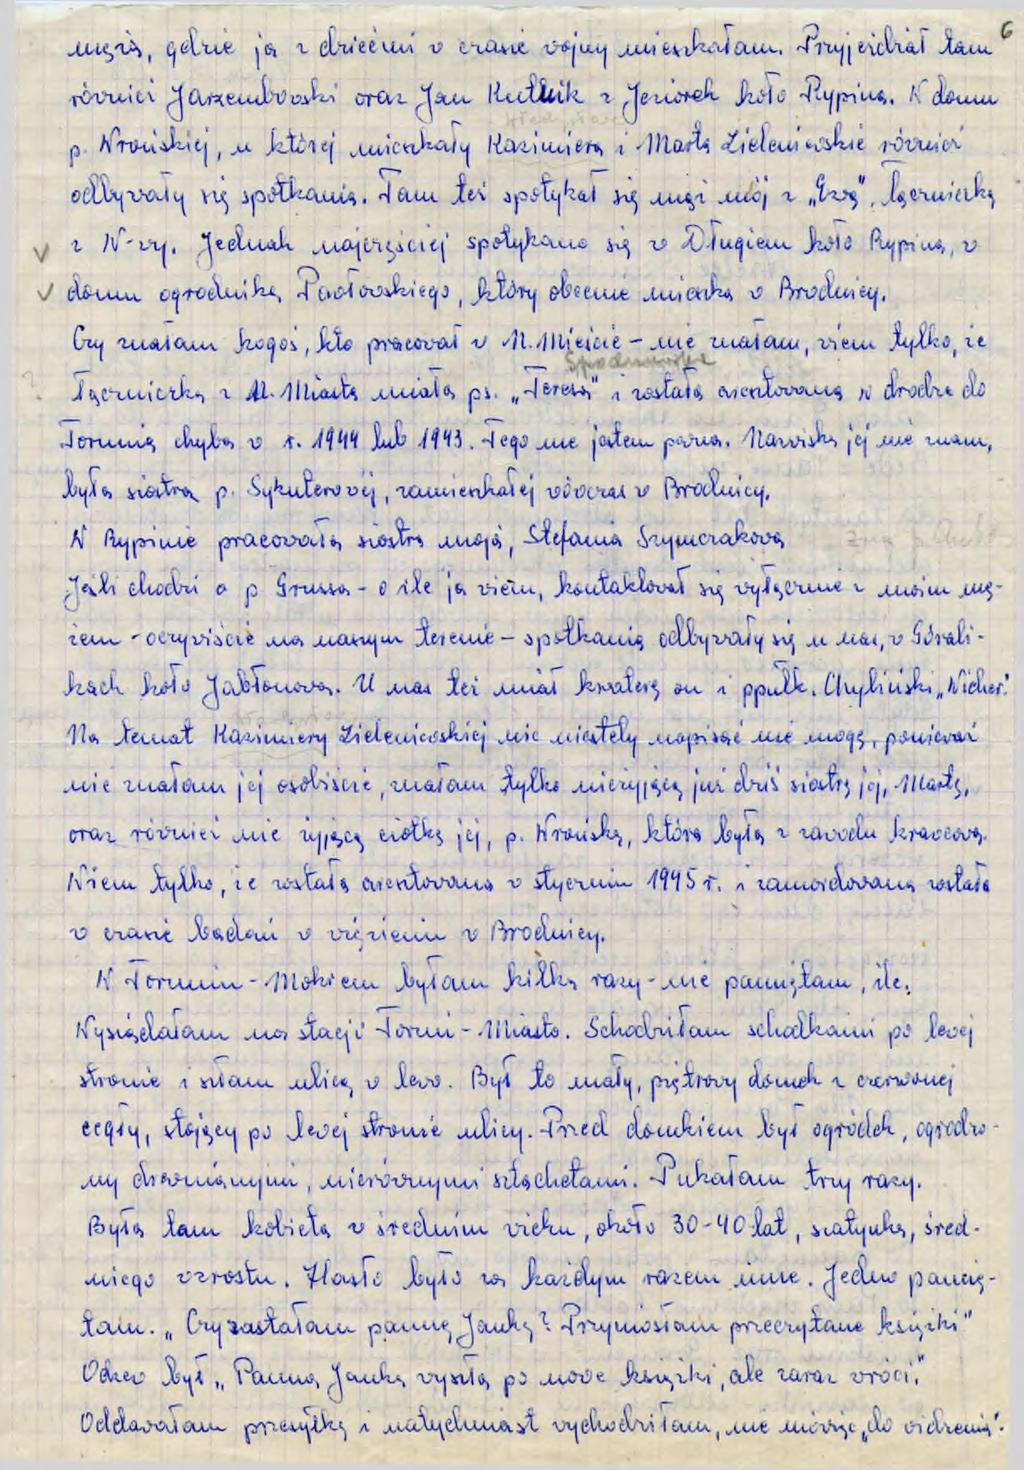 6
męża, gdzie ja z dziećmi w czasie wojny mieszkałam. Przyjeżdżał tam
również Jarzembowski oraz Jan Kutnik z Jeziorek koło Rypina. W domu
p. Wrońskiej, u której mieszkały Kazimiera i Marta Zieleniewskie również
odbywały się spotkania. Tam też spotykał się mąż mój z „Ewą", łączniczką
z W-wy. Jednak najczęściej spotykano się w Długiem koło Rypina, w
domu ogrodnika, Pawłowskiego, który obecnie mieszka w Brodnicy.
Czy znałam kogoś, kto pracował w N. Mieście – nie znałam, wiem tylko, że
łączniczka z N. Miasta miała ps. „Teresa" i została aresztowana w drodze do
Torunia chyba w r. 1944 lub 1943. Tego nie jestem pewna. Nazwiska jej nie znam,
była siostrą p. Sykuterowej, zamieszkałej wówczas w Brodnicy.
W Rypinie pracowała siostra moja, Stefania Szymczakowa
Jeśli chodzi o p. Grussa – o ile ja wiem, kontaktował się wyłącznie z moim mę-
żem – oczywiście na naszym terenie – spotkania odbywały się u nas, w Górali-
kach koło Jabłonowa. U nas też miał kwaterę on i ppułk. Chyliński „Wicher".
Na temat Kazimiery Zieleniewskiej nic niestety napisać nie mogę, ponieważ
nie znałam jej osobiście, znałam tylko nieżyjącą już dziś siostrę jej, Martę,
oraz również nie żyjącą ciotkę jej, p. Wrońską, która była z zawodu krawcową.
Wiem tylko, że została aresztowana w styczniu 1945 r. i zamordowana została
w czasie badań w więzieniu w Brodnicy.
W Toruniu – Mokrem byłam kilka razy – nie pamiętam, ile.
Wysiadałam na stacji Toruń – Miasto. Schodziłam schodkami po lewej
stronie i szłam ulicą w lewo. Był to mały, piętrowy domek z czerwonej
cegły, stojący po lewej stronie ulicy. Przed domkiem był ogródek, ogrodzo-
ny drewnianymi, nierównymi sztachetami. Pukałam trzy razy.
Była tam kobieta w średnim wieku, około 30-40 lat, szatynka, śred-
niego wzrostu. Hasło było za każdym razem inne. Jedno pamię-
tam. „Czy zastałam pannę Jankę? Przyniosłam przeczytane książki"
Odzew był „Panna Janka wyszła po nowe książki, ale zaraz wróci."
Oddawałam przesyłkę i natychmiast wychodziłam, nie mówiąc „do widzenia".